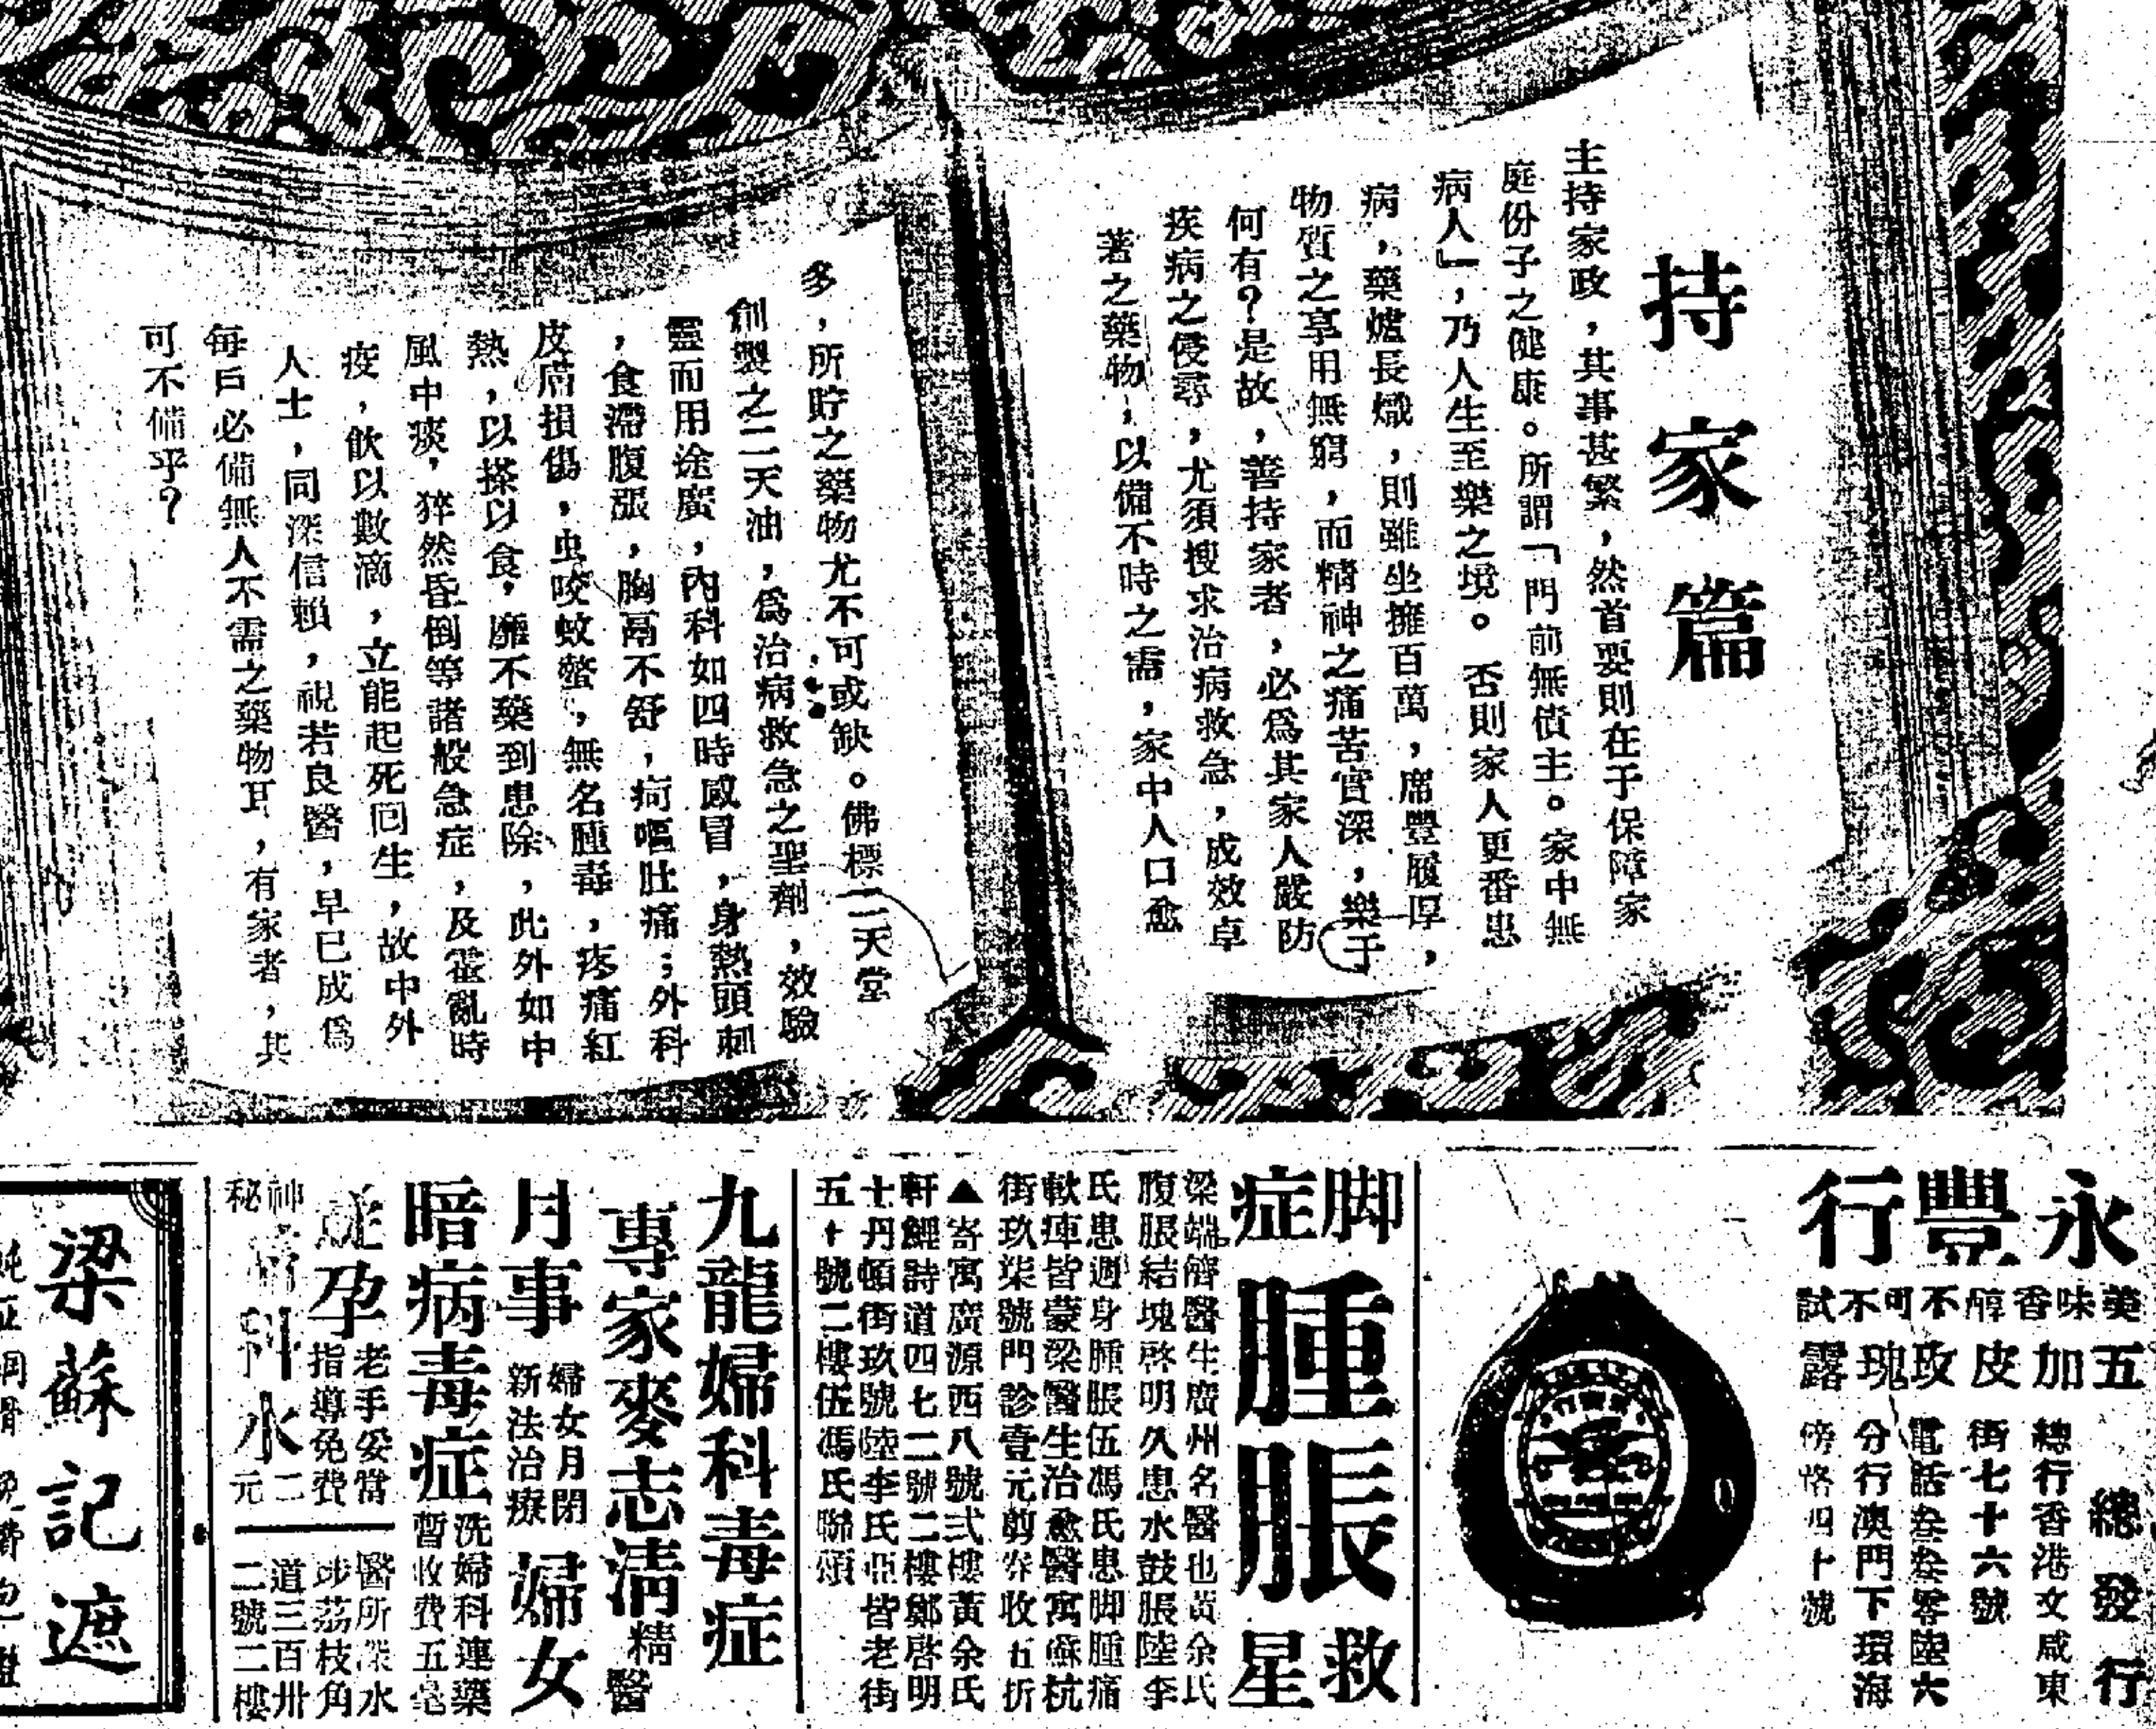 持家篇
主持家政，其事甚繁，然首要則在于保障家
庭份子之健康。所謂「門前無債主。家中無
病人」，乃人生至樂之境。否則家人更番患
病，藥爐長熾，則雖坐擁百萬，席豐履厚，
物質之享用無窮，而精神之痛苦實深，樂于
何有？是故，善持家者，必爲其家人嚴防
疾病之侵尋，尤須搜求治病救急，成效卓
著之藥物，以備不時之需，家中人口愈
多，所貯之藥物尤不可或缺。佛標二天堂
創製之二天油，爲治病救急之聖劑，效驗
靈而用途廣，內科如四時感冒，身熱頭刺
，食滯腹漲，胸鬲不舒，疴嘔肚痛；外科
皮膚損傷，虫咬蚊螫，無名腫毒，疼痛紅
熱，以搽以食，靡不藥到患除，此外如中
風中痰，猝然昏倒等諸般急症，及霍亂時
疫，飲以數滴，立能起死回生，故中外
人士，同深信賴，視若良醫，早已成爲
每戶必備無人不需之藥物耳，有家者，其
可不備乎？
永豐行
美味香醇不可不試
五加皮
玫瑰露
總發行
總行香港文咸東
街七十六號
電話叁叁零陸六
分行澳門下環海
傍 四十號
脚症
腫脹
救星
梁端 醫生廣州名醫也黃余氏
腹脹結塊啓明久患水鼓脹陸李
氏患週身腫脹伍馮氏患脚腫痛
軟痺皆蒙梁醫生治愈醫寓蘇杭
街玖柒號門診壹元剪 收五折
▲寄寓廣源西八號弍樓黃余氏
軒鯉詩道四七二號二樓鄭啓明
士丹頓街玖號陸李氏 皆老街
五十號二樓伍馮氏聯頌
九龍婦科毒症
專家麥志清精醫
月事
婦女月閉
新法治療
婦女
暗病毒症
洗婦科連藥
暫收費五毫
孕
老手妥當
指導免費
神秘
科水
二元
醫所深水
埗荔枝角
道三百卅
二號二樓
梁蘇記遮